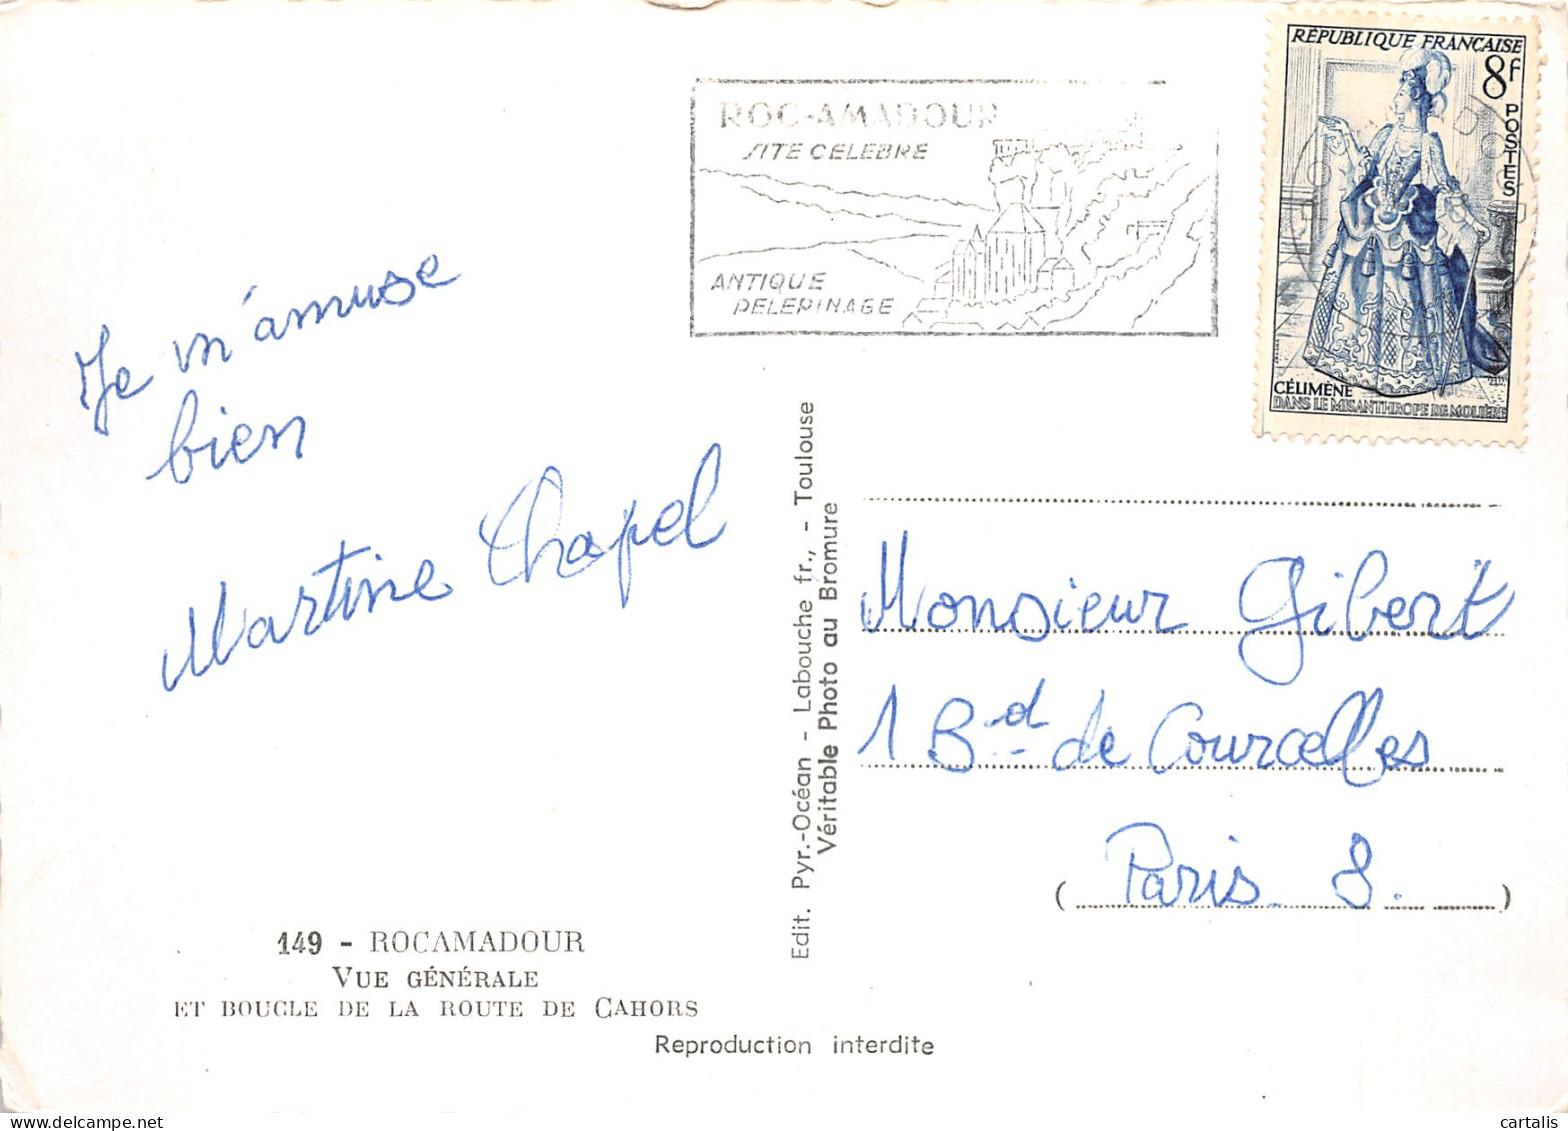 ROC-AMADOUR
SITE CELEBRE
ANTIQUE
PELERINAGE
RÉPUBLIQUE FRANÇAISE
8F
POSTES
CÉLIMÈNE
DANS LE MISANTHROPE DE MOLIÈRE
Je m'amuse
bien
Martine Chapel
Edit. Pyr.-Océan - Labouche fr., - Toulouse
Véritable Photo au Bromure
Monsieur Gibert
1 Bd de Courcelles
( Paris 8. )
149 - ROCAMADOUR
VUE GÉNÉRALE
ET BOUCLE DE LA ROUTE DE CAHORS
Reproduction interdite
cartalis